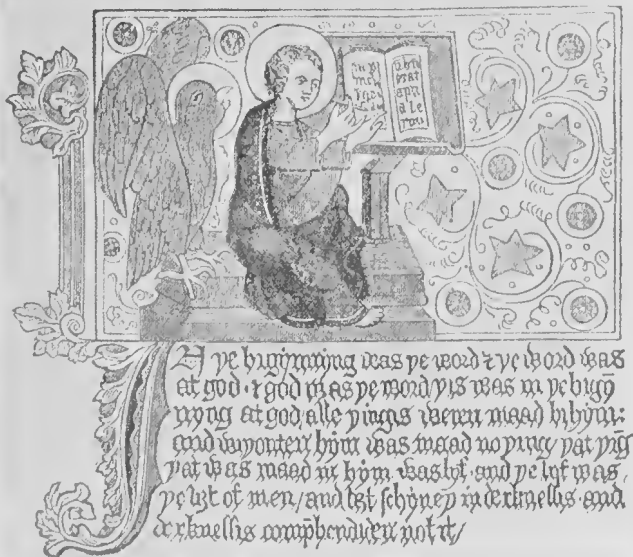 In þe bigynnyng was þe word ⁊ þe word was
at god · ⁊ god was þe word þis was in þe bigyn̄
nyng at god/ alle þingis weren maad bi hym:
and wiþouten hym was maad no þing/ þat þīg
þat was maad in hym was lyf · and þe lyf was
þe lyȝt of men/ and lyȝt schyneþ in derknessis · and
derknessis comp̄henduen not it/